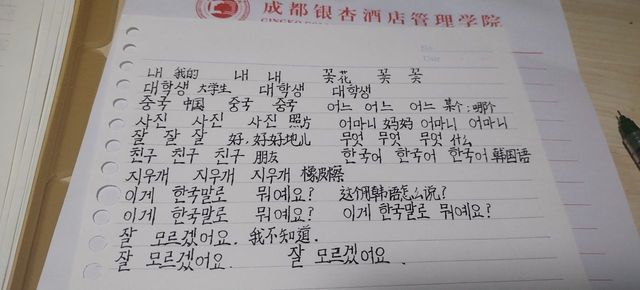 成都银杏酒店管理学院
No.
Date
내 我的 내 내 꽃花 꽃 꽃
대학생 大学生 대학생 대학생
중국 中国 중국 중국 어느 어느 어느 某个;哪个
사진 사진 사진 照片 어머니 妈妈 어머니 어머니
잘 잘 잘 好,好好地儿 무엇 무엇 무엇 什么
친구 친구 친구 朋友 한국어 한국어 한국어 韩国语
지우개 지우개 지우개 橡皮擦
이게 한국말로 뭐예요? 这个用韩语怎么说?
이게 한국말로 뭐예요? 이게 한국말로 뭐예요?
잘 모르겠어요. 我不知道.
잘 모르겠어요. 잘 모르겠어요.